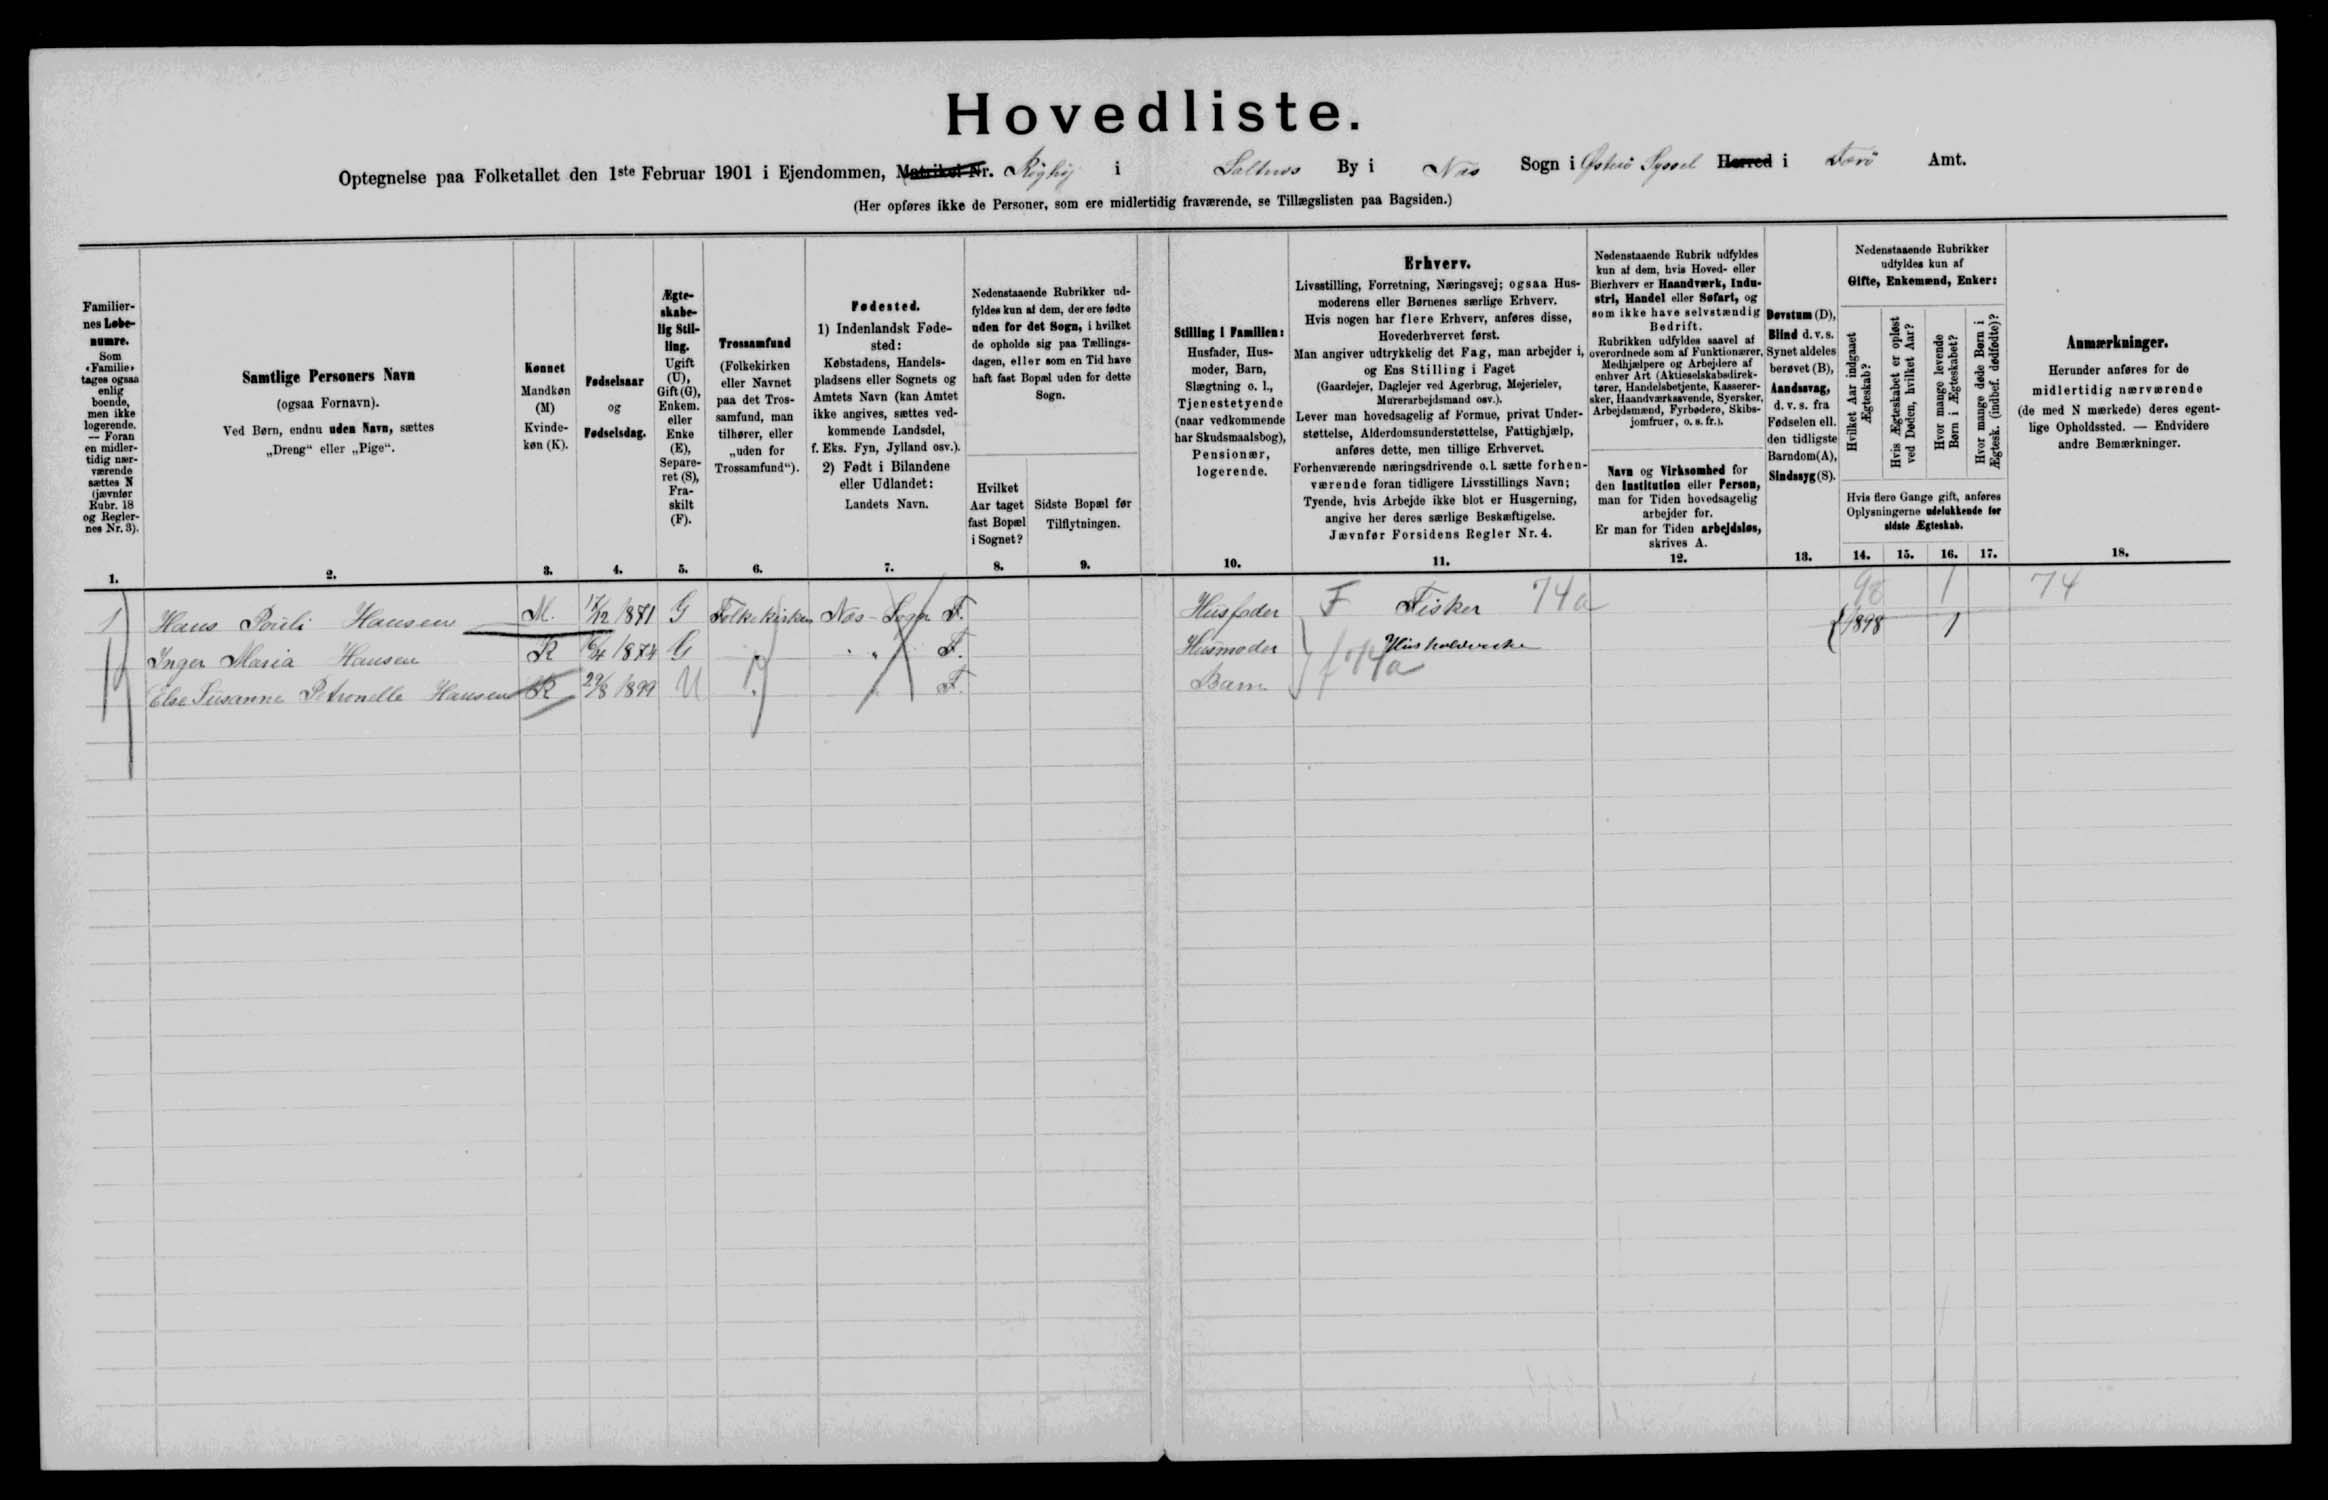 Hovedliste.
Optegnelse paa Folketallet den 1ste Februar 1901 i Ejendommen, Matrikel-Nr. i Saltnes By i Næs Sogn i Østerø Syssel Herred i Færø Amt.
(Her opføres ikke de Personer, som ere midlertidig fraværende, se Tillægslisten paa Bagsiden.)
Familier-
nes Løbe-
numre.
Som
«Familie»
tages ogsaa
enlig
boende,
men ikke
logerende.
— Foran
en midler-
tidig nær-
værende
sættes N
(jævnfør
Rubr. 18
og Regler-
nes Nr. 3).
1.
Samtlige Personers Navn
(ogsaa Fornavn).
Ved Børn, endnu uden Navn, sættes
„Dreng" eller „Pige".
2.
Kønnet
Mandkøn
(M)
Kvinde-
køn (K).
3.
Fødselsaar
og
Fødselsdag.
4.
Ægte-
skabe-
lig Stil-
ling.
Ugift
(U),
Gift (G),
Enkem.
eller
Enke
(E),
Separe-
ret (S),
Fra-
skilt
(F).
5.
Trossamfund
(Folkekirken
eller Navnet
paa det Tros-
samfund, man
tilhører, eller
„uden for
Trossamfund").
6.
Fødested.
1) Indenlandsk Føde-
sted:
Købstadens, Handels-
pladsens eller Sognets og
Amtets Navn (kan Amtet
ikke angives, sættes ved-
kommende Landsdel,
f. Eks. Fyn, Jylland osv.).
2) Født i Bilandene
eller Udlandet:
Landets Navn.
7.
Nedenstaaende Rubrikker ud-
fyldes kun af dem, der ere fødte
uden for det Sogn, i hvilket
de opholde sig paa Tællings-
dagen, eller som en Tid have
haft fast Bopæl uden for dette
Sogn.
Hvilket
Aar taget
fast Bopæl
i Sognet?
8.
Sidste Bopæl før
Tilflytningen.
9.
Stilling i Familien:
Husfader, Hus-
moder, Barn,
Slægtning o. l.,
Tjenestetyende
(naar vedkommende
har Skudsmaalsbog),
Pensionær,
logerende.
10.
Erhverv.
Livsstilling, Forretning, Næringsvej; ogsaa Hus-
moderens eller Børnenes særlige Erhverv.
Hvis nogen har flere Erhverv, anføres disse,
Hovederhvervet først.
Man angiver udtrykkelig det Fag, man arbejder i,
og Ens Stilling i Faget
(Gaardejer, Daglejer ved Agerbrug, Mejerielev,
Murerarbejdsmand osv.).
Lever man hovedsagelig af Formue, privat Under-
støttelse, Alderdomsunderstøttelse, Fattighjælp,
anføres dette, men tillige Erhvervet.
Forhenværende næringsdrivende o. l. sætte forhen-
værende foran tidligere Livsstillings Navn;
Tyende, hvis Arbejde ikke blot er Husgerning,
angive her deres særlige Beskæftigelse.
Jævnfør Forsidens Regler Nr. 4.
11.
Nedenstaaende Rubrik udfyldes
kun af dem, hvis Hoved- eller
Bierhverv er Haandværk, Indu-
stri, Handel eller Søfart, og
som ikke have selvstændig
Bedrift.
Rubrikken udfyldes saavel af
overordnede som af Funktionærer,
Medhjælpere og Arbejdere af
enhver Art (Aktieselskabsdirek-
tører, Handelsbetjente, Kasserer-
sker, Haandværkssvende, Syersker,
Arbejdsmænd, Fyrbødere, Skibs-
jomfruer, o. s. fr.).
Navn og Virksomhed for
den Institution eller Person,
man for Tiden hovedsagelig
arbejder for.
Er man for Tiden arbejdsløs,
skrives A.
12.
Døvstum (D),
Blind d. v. s.
Synet aldeles
berøvet (B),
Aandssvag,
d. v. s. fra
Fødselen ell.
den tidligste
Barndom (A),
Sindssyg (S).
13.
Nedenstaaende Rubrikker
udfyldes kun af
Gifte, Enkemænd, Enker:
Hvilket Aar indgaaet
Ægteskab?
Hvis Ægteskabet er opløst
ved Døden, hvilket Aar?
Hvor mange levende
Børn i Ægteskabet?
Hvor mange døde Børn i
Ægtesk. (indbef. dødfødte)?
Hvis flere Gange gift, anføres
Oplysningerne udelukkende for
sidste Ægteskab.
14. 15. 16. 17.
Anmærkninger.
Herunder anføres for de
midlertidig nærværende
(de med N mærkede) deres egent-
lige Opholdssted. — Endvidere
andre Bemærkninger.
18.
1 Hans Pouli Hansen M. 17/12 1871 G Folkekirken Næs Sogn F. Husfader F Fisker 74a 98 1 74
Inger Maria Hansen K 6/4 1874 G " " F. Husmoder 1898 1
Else Susanne Petronelle Hansen K 29/8 1899 U " " F. Barn f 74a